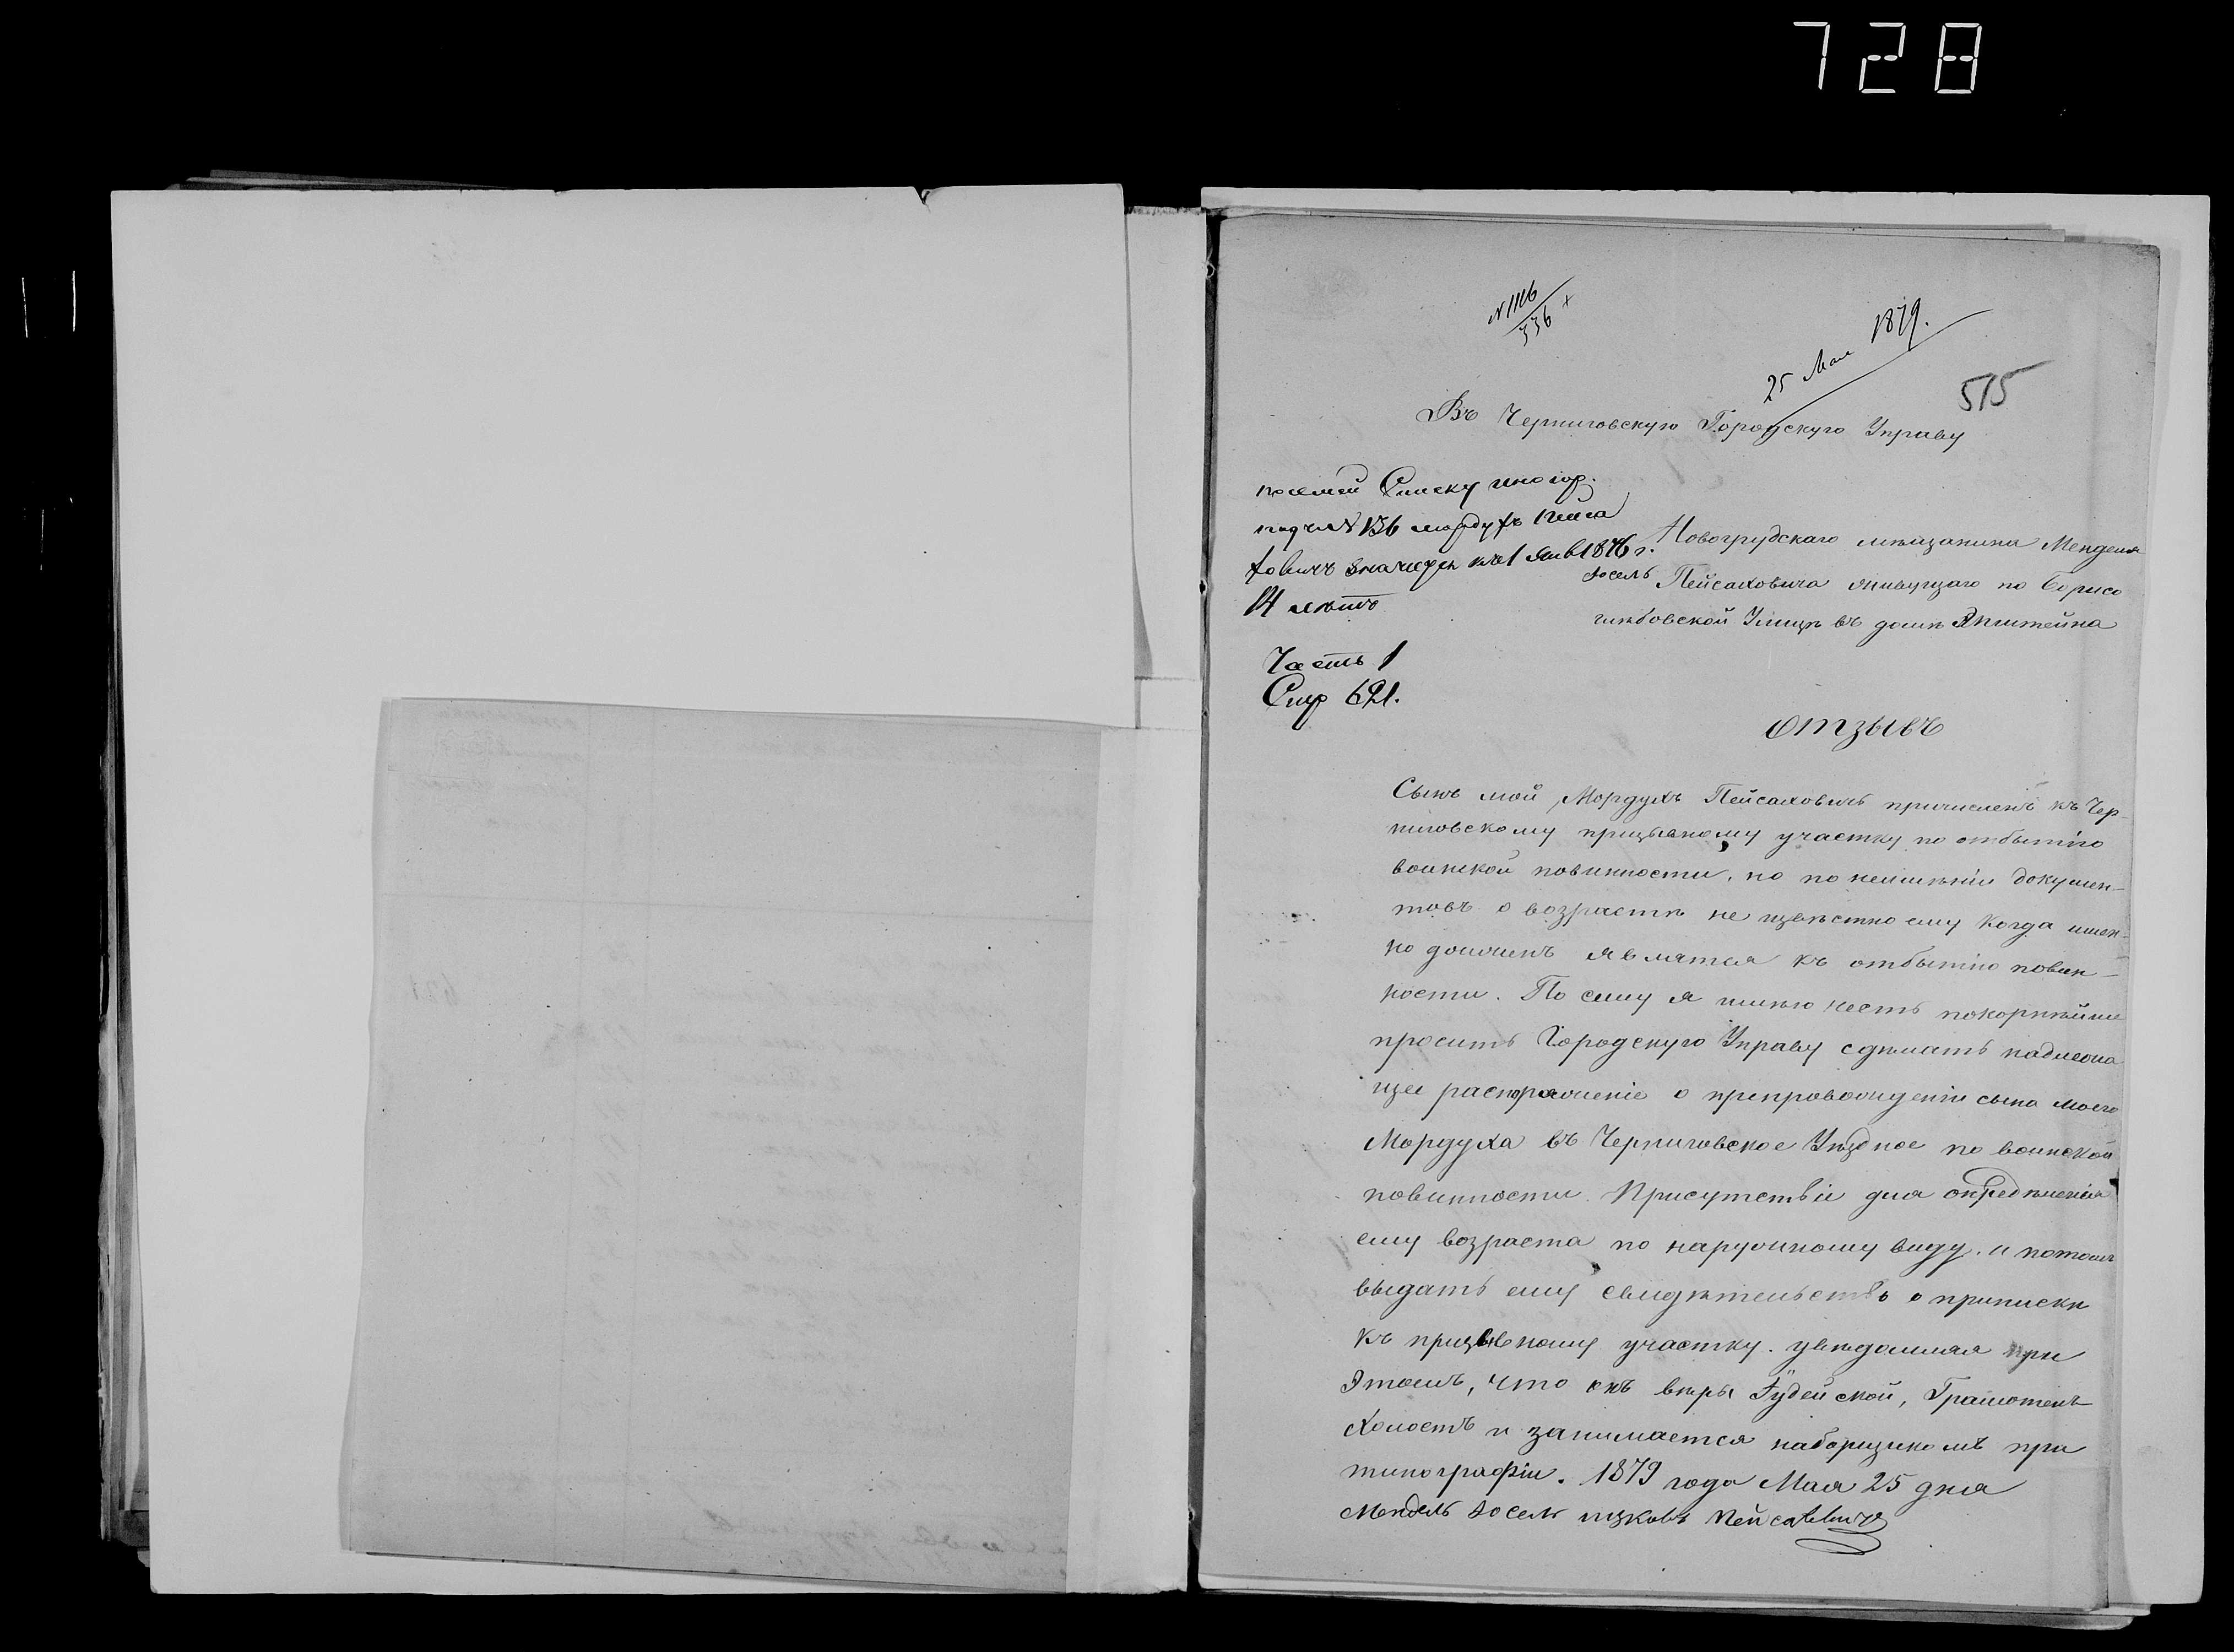 728
N 1116
336 +
25 Мая 1879.
515
Въ Черниговскую Городскую Управу
посемей Списку иногор.
подъ N 136 Мордухъ Пейса
ховичъ значится къ 1 Янв 1876 г.
14 лѣтъ
Часть 1
Стр 621.
Новогрудскаго мѣщанина Менделя
Іосель Пейсаховича живущаго по Борисо
глѣбовской Улицѣ въ домѣ Эпштейна
отзывъ
Сынъ мой Мордухъ Пейсаховичъ причисленъ къ Чер-
ниговскому призывному участку по отбытію
воинской повинности, но по неимѣнію докумен-
товъ о возрастѣ не извѣстно ему когда имен-
но долженъ являтся къ отбытію повин-
ности. По сему я имѣю честь покорнѣйше
просить Городскую Управу сдѣлать надлежа
щее распоряженіе о препровожденіи сына моего
Мордуха въ Черниговское Уѣздное по воинской
повинности Присутствіе для опредѣленія
ему возраста по наружному виду. и потомъ
выдать ему свидѣтельство о припискѣ
къ призывному участку. увѣдомляя при
Этомъ, что онъ вѣры Іудейской, Грамотенъ
Холостъ и занимается наборщикомъ при
типографіи. 1879 года Мая 25 дня
Мендель Іосель Ицковъ Пейсаховичъ